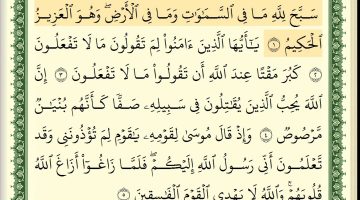 سَبَّحَ لِلَّهِ مَا فِى السَّمَٰوَٰتِ وَمَا فِى الْأَرْضِ ۖ وَهُوَ الْعَزِيزُ
الْحَكِيمُ ١ يَٰٓأَيُّهَا الَّذِينَ ءَامَنُوا لِمَ تَقُولُونَ مَا لَا تَفْعَلُونَ
٢ كَبُرَ مَقْتًا عِندَ اللَّهِ أَن تَقُولُوا مَا لَا تَفْعَلُونَ ٣ إِنَّ
اللَّهَ يُحِبُّ الَّذِينَ يُقَٰتِلُونَ فِى سَبِيلِهِ صَفًّا كَأَنَّهُم بُنْيَٰنٌ
مَّرْصُوصٌ ٤ وَإِذْ قَالَ مُوسَىٰ لِقَوْمِهِ يَٰقَوْمِ لِمَ تُؤْذُونَنِى وَقَد
تَّعْلَمُونَ أَنِّى رَسُولُ اللَّهِ إِلَيْكُمْ ۖ فَلَمَّا زَاغُوٓا أَزَاغَ اللَّهُ
قُلُوبَهُمْ ۚ وَاللَّهُ لَا يَهْدِى الْقَوْمَ الْفَٰسِقِينَ ٥